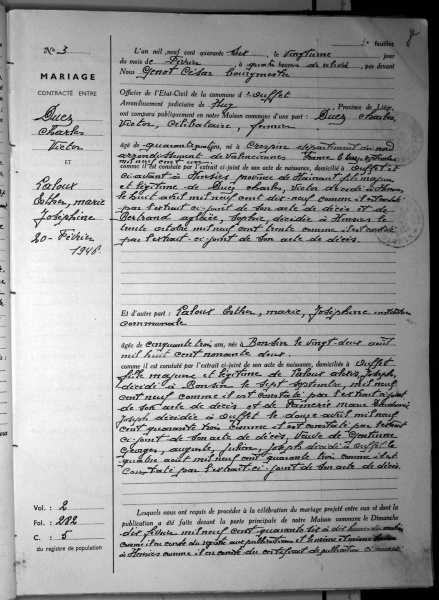 1e feuillet
N° 3
MARIAGE
CONTRACTÉ ENTRE
Ducz
Charles
Victor
ET
Paloux
Esther, marie
Joséphine
20 - Février
1946.
Vol. : 2
Fol. : 282
C. : 5
du registre de population
L'an mil neuf cent quarante six, le vingtième jour
du mois de Février à quatre heures de relevé, par devant
Nous Genot César bourgmestre
Officier de l'Etat-Civil de la commune d'Ouffet
Arrondissement judiciaire de Huy, Province de Liége,
ont comparu publiquement en notre Maison commune d'une part : Ducz Charles,
Victor, Célibataire, fermier
âgé de quarante ans, né à Crespin département du nord
arrondissement de Valenciennes France
mil neuf cent
comme il est constaté par l'extrait ci-joint de son acte de naissance, domicilié à Ouffet et
ci-avant à Hensies province de Hainaut fils majeur
et légitime de Ducz Charles, Victor décédé à Hensies
le huit avril mil neuf cent dix-neuf comme il est constaté
par l'extrait ci-joint de son acte de décès et de
Bertrand aglaée, Sophie, décédée à Hensies le
trente octobre mil neuf cent trente comme il est constaté
par l'extrait ci-joint de son acte de décès.
Et d'autre part : Paloux Esther, marie, Joséphine institutrice
communale
âgée de cinquante trois ans, née à Bonsin le vingt deux août
mil huit cent nonante deux.
comme il est constaté par l'extrait ci-joint de son acte de naissance, domiciliée à Ouffet
fille majeure et légitime de Paloux alexis, Joseph,
décédé à Bonsin le sept Septembre, mil neuf
cent neuf comme il est constaté par l'extrait ci-joint
de son acte de décès et de marie
Joseph décédée à Ouffet le douze avril mil neuf
cent quarante trois comme il est constaté par l'extrait
ci-joint de son acte de décès, Veuve de
Georges, auguste, Joseph décédé à Ouffet le
quatre août mil neuf cent quarante trois comme il est
constaté par l'extrait ci-joint de son acte de décès.
Lesquels nous ont requis de procéder à la célébration du mariage projeté entre eux et dont la
publication a été faite devant la porte principale de notre Maison commune le Dimanche
dix février mil neuf cent quarante six à dix heures du matin
comme il en conste du registre aux publications et le même
à Hensies comme il en conste du certificat de publication ci-annexé